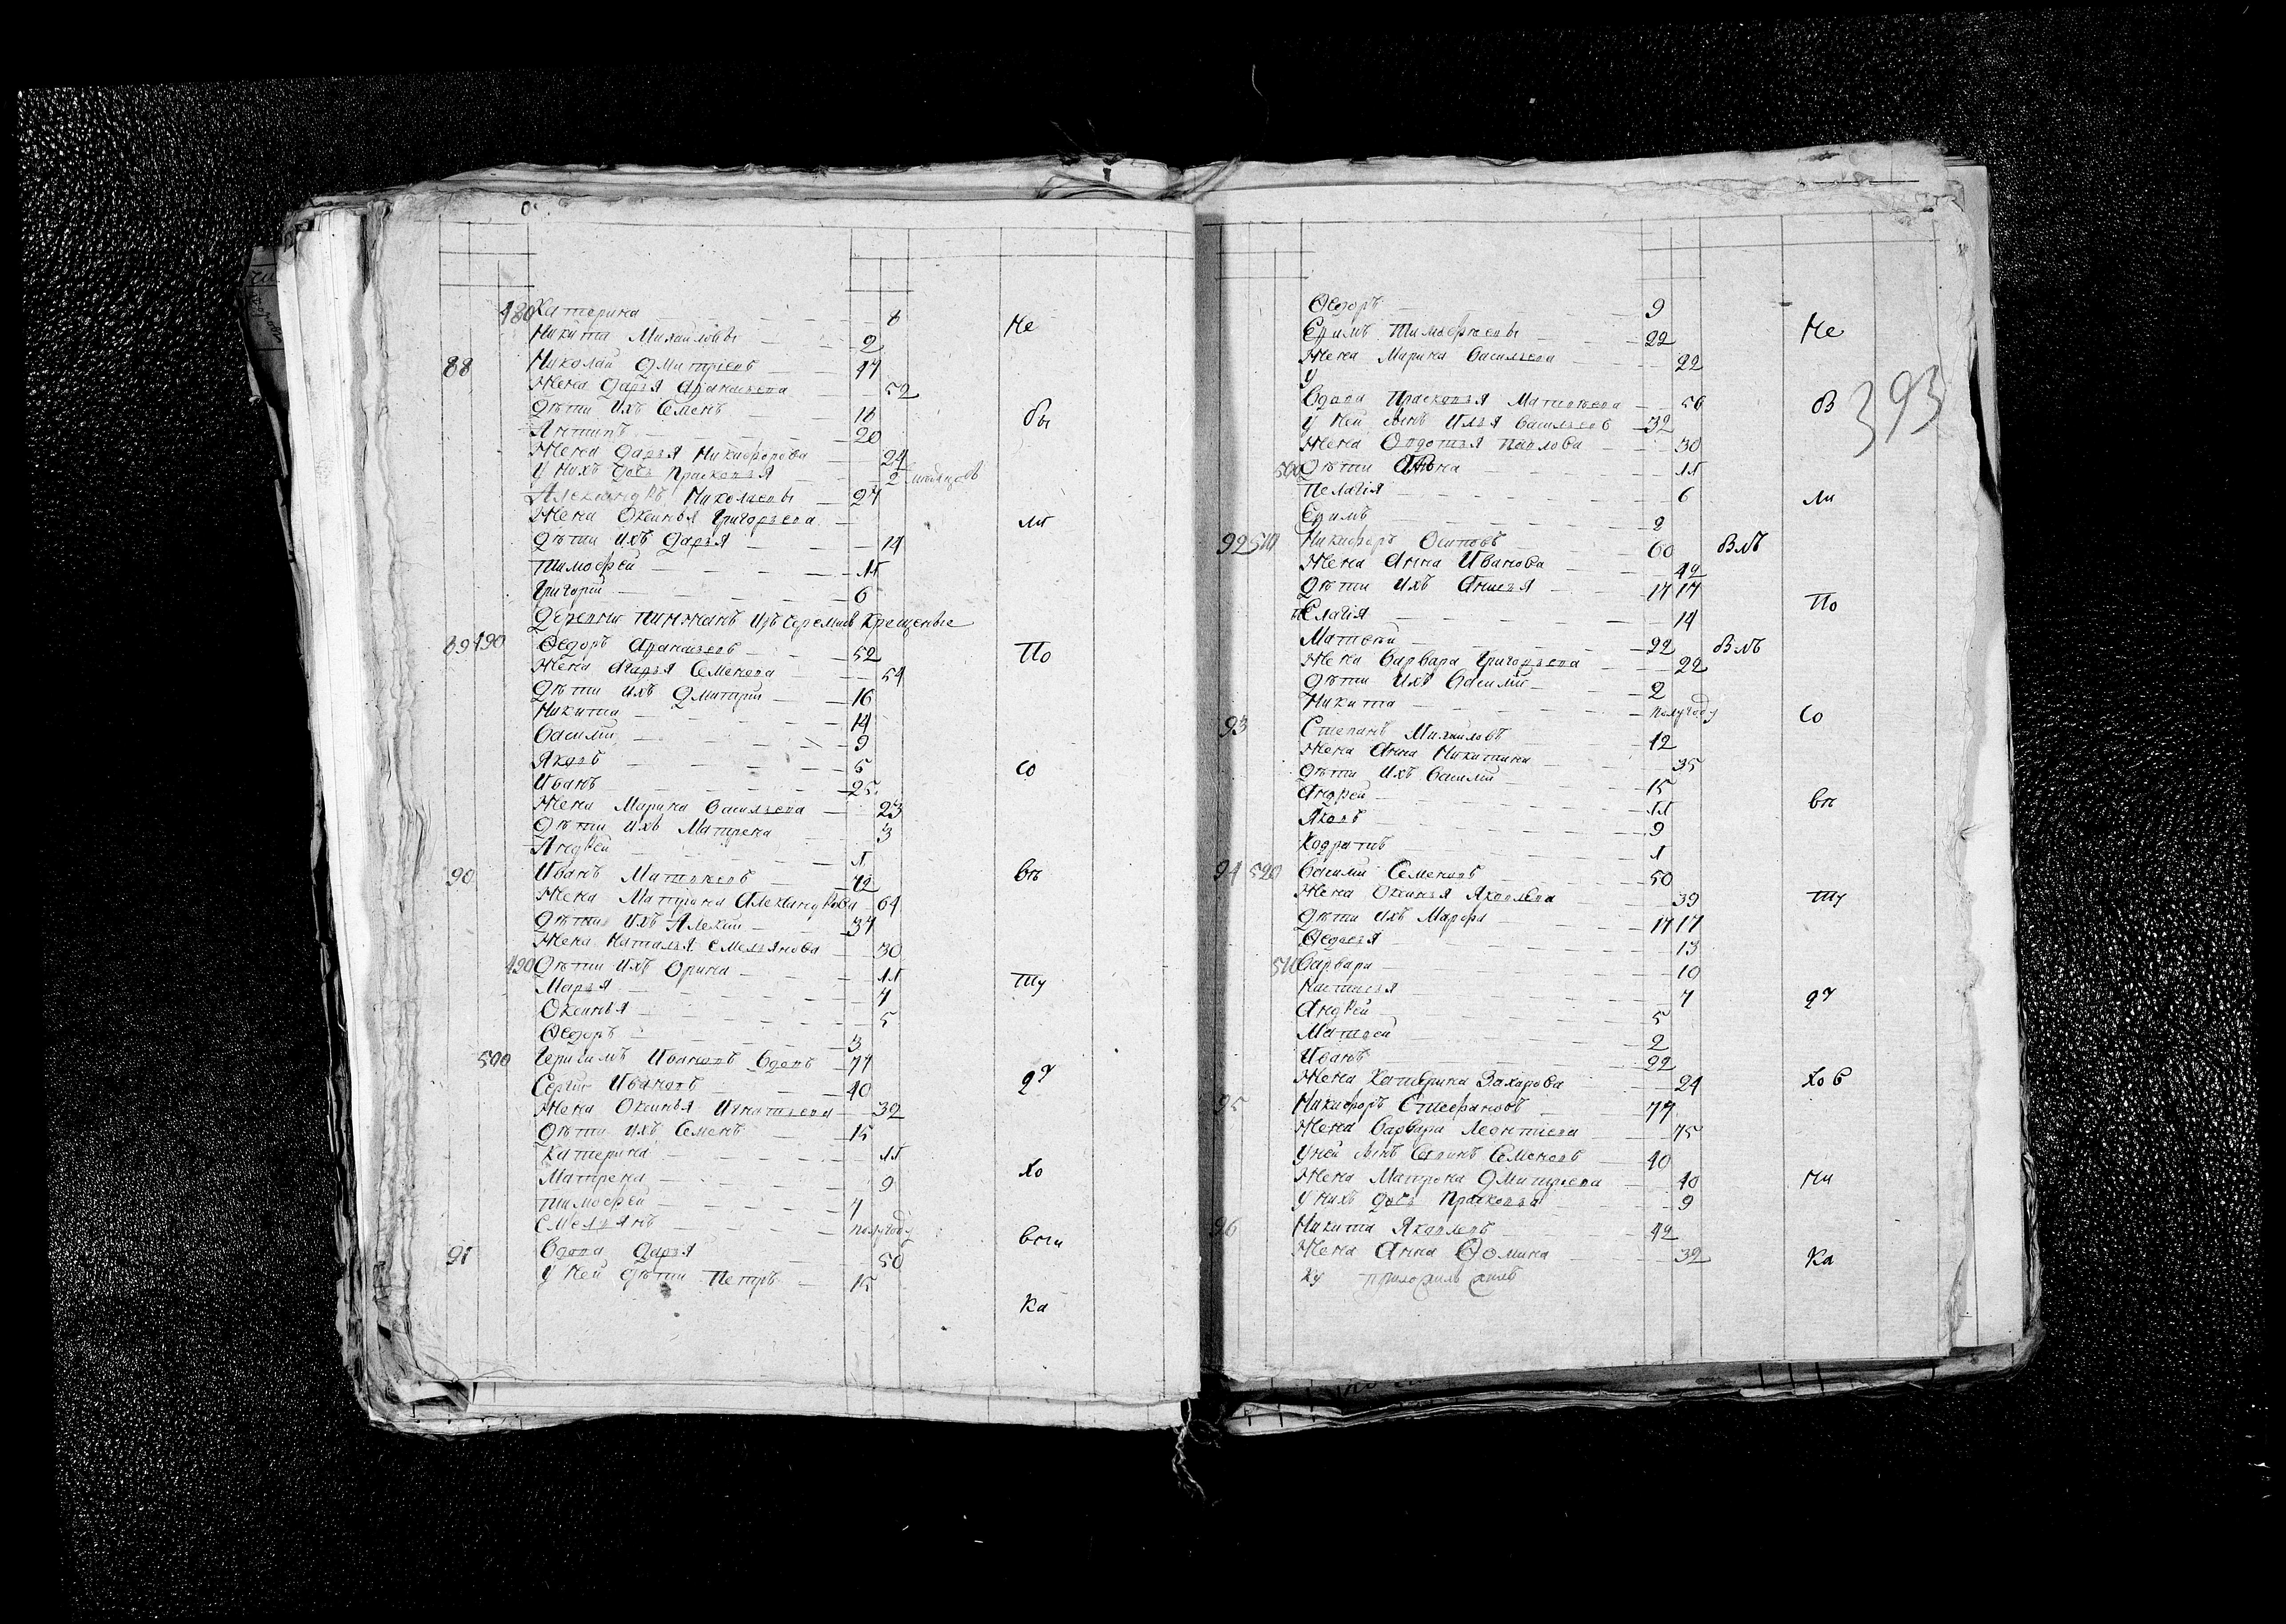 480 Катерина 8
Никита Михаиловъ 2
Не
88 Николай Дмитріевъ 47
Жена Дарья Афанасьева 52
Дѣти ихъ Семенъ 18
Антипъ 20
Жена Дарья Никифорова 24
у нихъ дочь Прасковья 2
Александръ Николаевъ 27
Жена Оксинья Григорьева
Дѣти ихъ Дарья 14
Тимофей 11
Григорей 6
Деревни изъ Черемисъ Крещеные
89 490 Ѳедоръ Афанасьевъ 52
По
Жена Дарья Семенова 54
Дѣти ихъ Дмитрій 16
Никита 14
Василій 9
Яковъ 5
Со
Иванъ 25
Жена Марина Васильева 23
Дѣти ихъ Матрена 3
Андрей 1
90 Иванъ Матвѣевъ 72
вѣ
Жена Матрена Александрова 64
Дѣти ихъ Алексѣй 37
Жена Наталья Емельянова 30
Дѣти ихъ Орина 11
Ту
Марья 7
Оксинья 5
Ѳедоръ 3
500 Герасимъ Ивановъ вдовъ 77
Сергій Ивановъ 40
Жена Оксинья Игнатьева 32
Дѣти ихъ Семенъ 15
Катерина 11
Хо
Матрена 9
Тимофей 7
Емельянъ полугоду
91 Вдова Дарья 50
у ней дѣти Петръ 15
Ка
Ѳедоръ 9
Ефимъ Тимофѣевъ 22
Не
Жена Марина Васильева 22
У
Вдова Прасковья Матвѣева 56
В
393
у ней сынъ Илья Васильевъ 32
Жена Овдотья Павлова 30
Дѣти Анна 11
Пелагія 6
ли
Ефимъ 2
92 Никифоръ Осиповъ 60
Жена Анна Иванова 42
Дѣти ихъ Анисья 17 17
Пелагія 14
По
Матвѣй 22
Жена Варвара Григорьева 22
Дѣти ихъ Василій 2
Никита полугоду
Со
93 Степанъ Михаиловъ 42
Жена Анна Никитина 35
Дѣти ихъ Василій 15
Андрей 11
вѣ
Яковъ 9
Кодратъ 1
94 520 Василій Семеновъ 50
Жена Оксинья Яковлева 39
Ту
Дѣти ихъ Марфа 17 17
Ѳедосья 13
Варвара 10
Настасья 7
Андрей 5
Матвей 2
Иванъ 22
Жена Катерина Захарова 24
95 Никифоръ Стефановъ 77
Жена Варвара Леонтиева 75
У ней сынъ Семеновъ 40
Жена Матрона Дмитриева 40
Ни
У нихъ дочь Прасковья 9
96 Никита Яковлевъ 42
Жена Анна Ѳомина 32
Ка